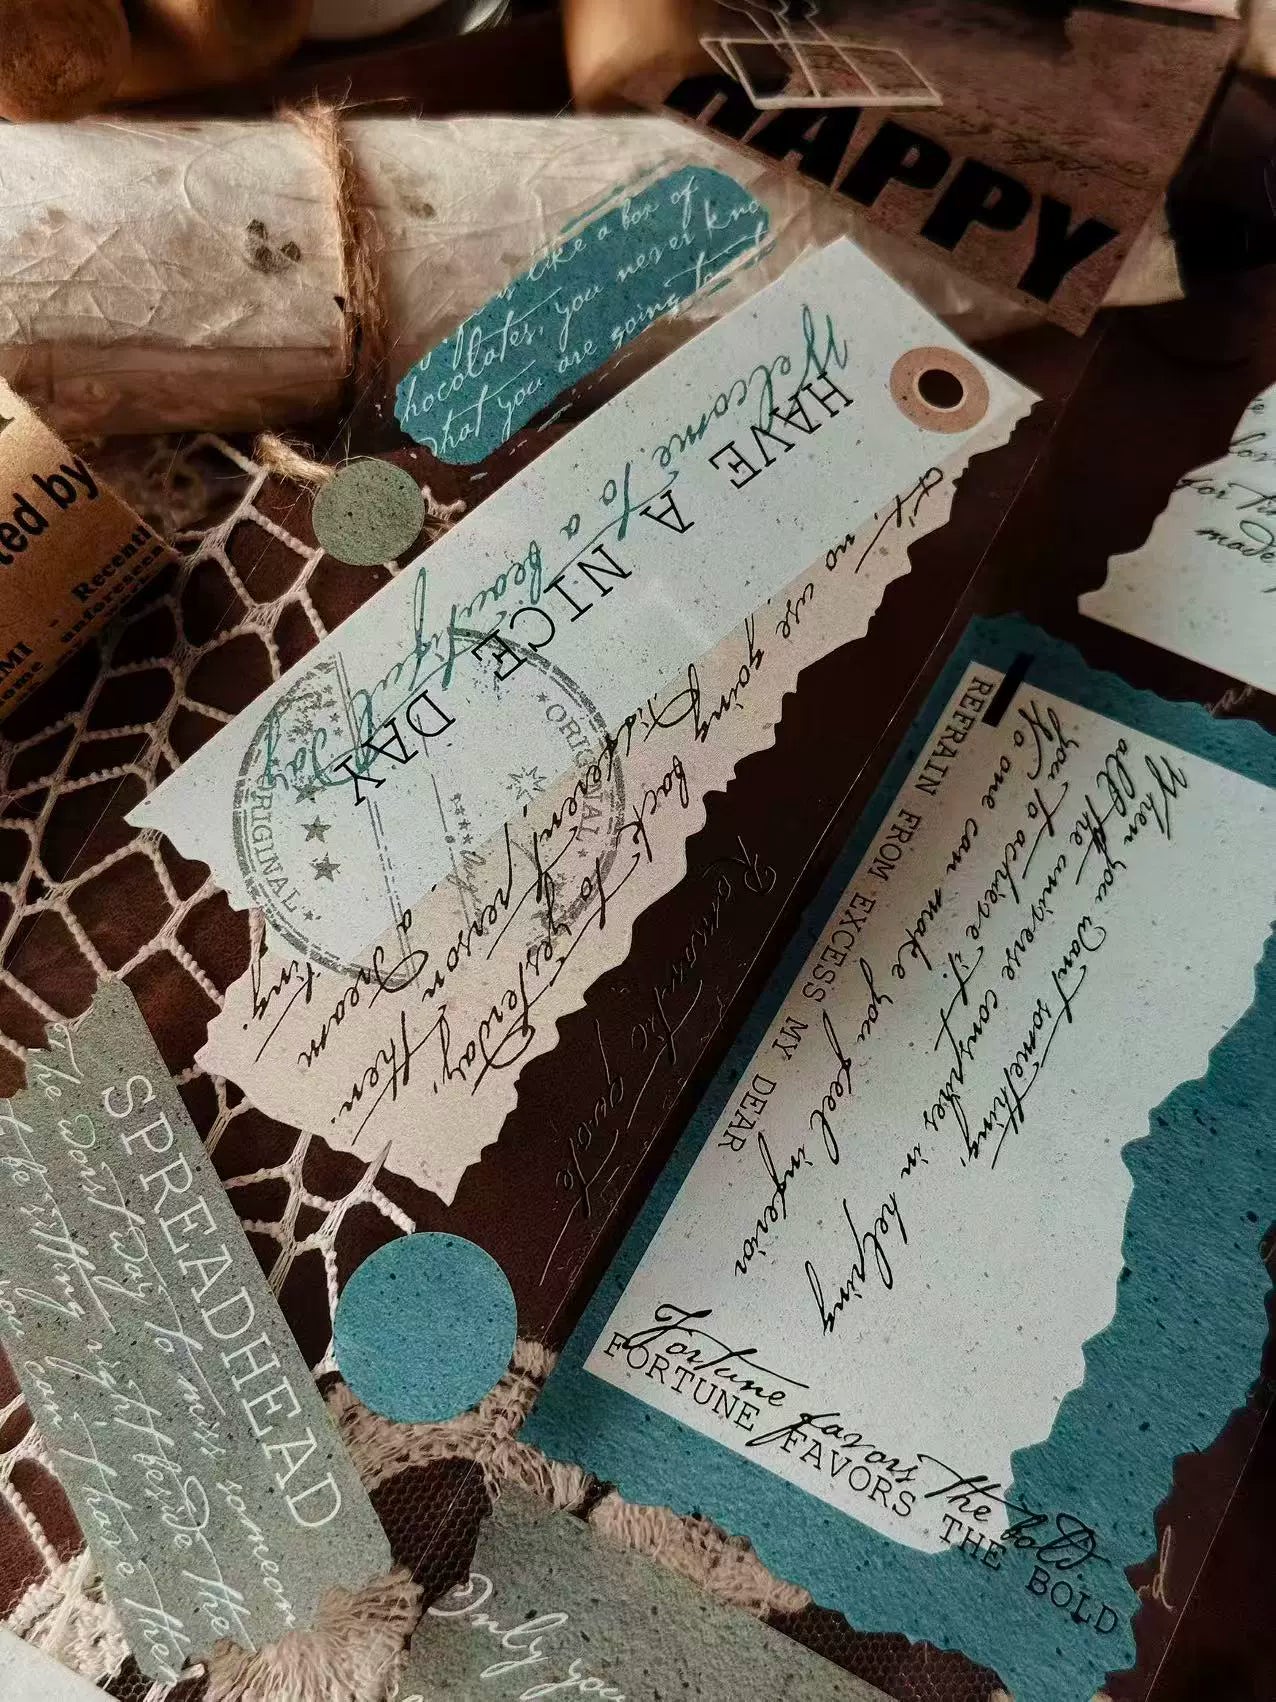 HAPPY
like a box of
chocolates, you never kno
what you are going t
Welcome to a beautiful day
HAVE A NICE DAY
ORIGINAL
ORIGINAL
It' no use going back to yesterday,
different person then.
a dream
ing.
ted by
Recentl
Romantic quote
for
made
When you want something,
all the universe conspires in helping
you to achieve it.
No one can make you feel inferior
REFRAIN FROM EXCESS MY DEAR
Fortune favors the bold.
FORTUNE FAVORS THE BOLD
SPREADHEAD
The worst way to miss someon
t be sitting right beside the
you can't have the
Only you